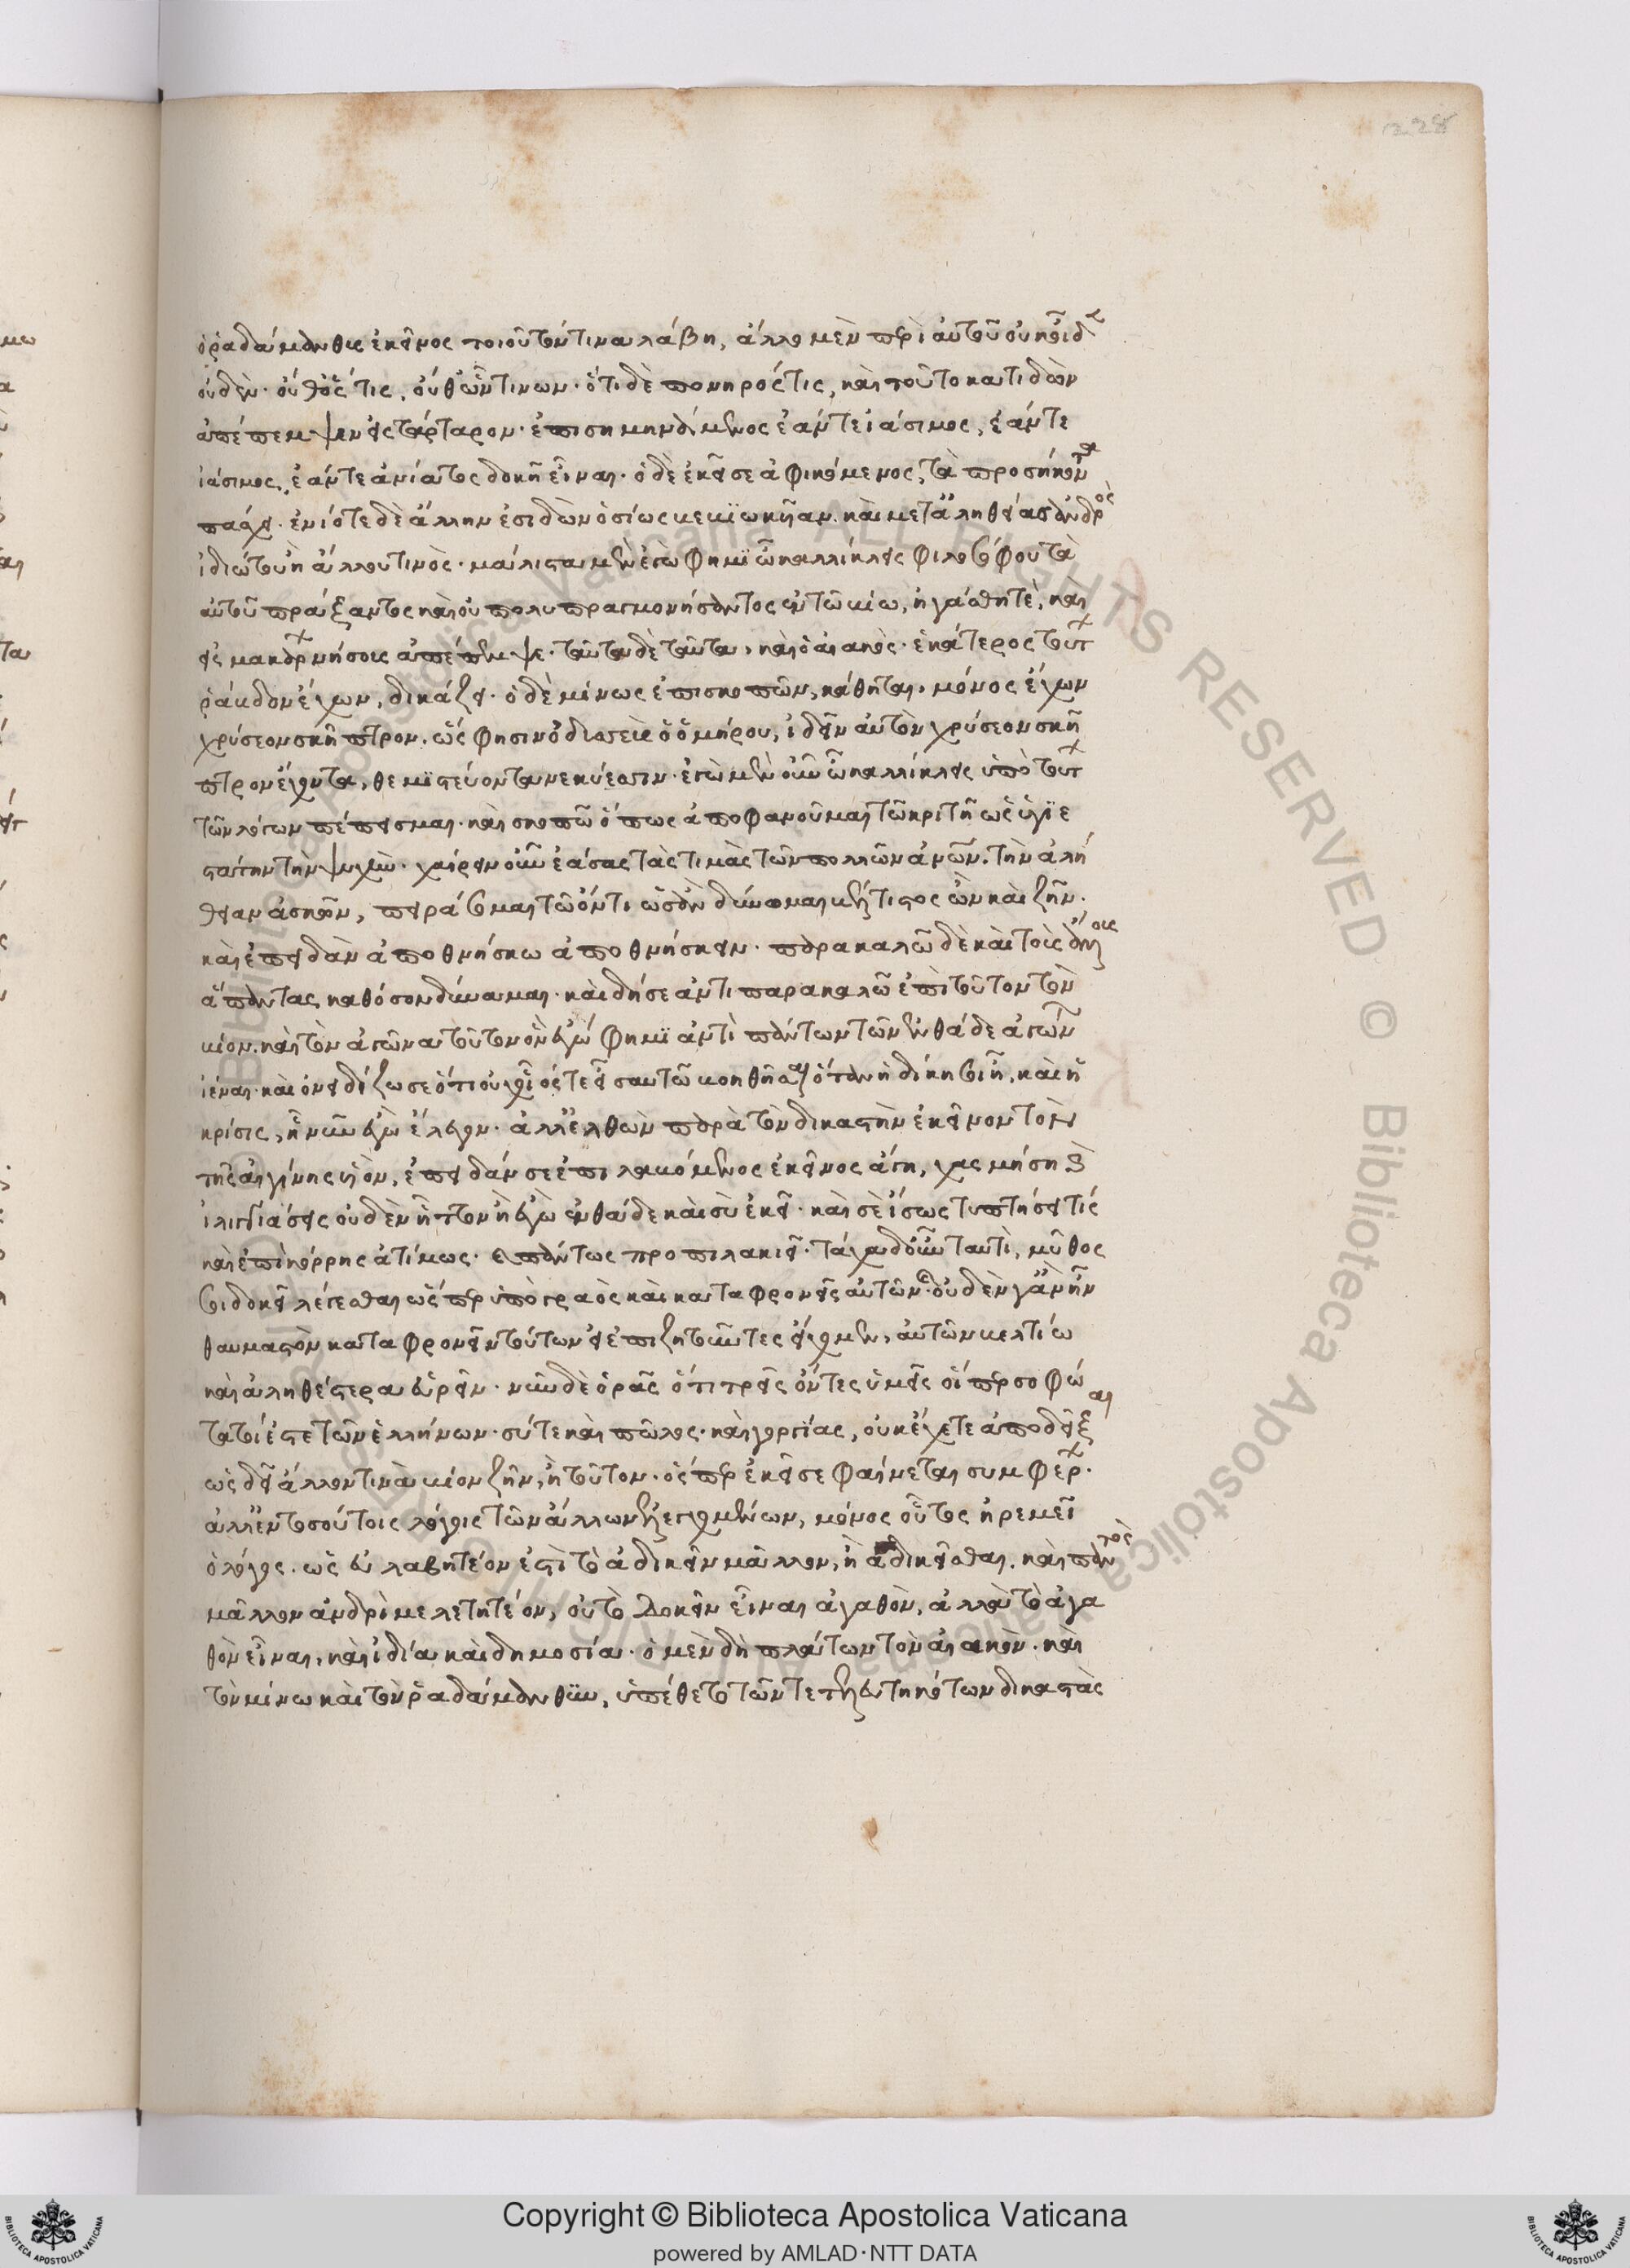 228
ὁ ῥαδάμανθυς ἐκεῖνος τοιοῦτόν τινα λάβη, ἄλλο μὲν περὶ αὐτοῦ οὐκ οἶδεν
οὐδὲν· οὔθ' ὅς τις, οὔθ' ὧν τινων· ὅτι δὲ πονηρός τις, καὶ τοῦτο κατιδὼν
ἀπέπεμψεν εἰς τάρταρον· ἐπισημηνάμενος ἐάν τε ἰάσιμος, ἐάν τε
ἰάσιμος, ἐάν τε ἀνίατος δοκῆ εἶναι· ὁ δὲ ἐκεῖσε ἀφικόμενος, τὰ προσήκοντα
πάσχει· ἐνίοτε δὲ ἄλλην ἐσιδὼν ὁσίως βεβιωκῆαν· καὶ μετ' ἀληθείας ἀνδρὸς
ἰδιώτου ἢ ἄλλου τινὸς· μάλιστα μὲν ἐγώ φημι ὦ καλλίκλεις φιλοσόφου τὰ
αὐτοῦ πράξαντος καὶ οὐ πολυπραγμονήσαντος ἐν τῶ βίω, ἠγάσθη τὲ, καὶ
εἰς μακάρων νήσους ἀπέπεμψε· ταῦτα δὲ ταῦτα, καὶ ὁ αἰακός· ἑκάτερος τούτων
ῥάβδον ἔχων, δικάζει· ὁ δὲ μίνως ἐπισκοπῶν, κάθηται, μόνος ἔχων
χρύσεον σκῆπτρον· ὥς φησιν ὀδυσσεὺς ὁ ὁμήρου, ἰδεῖν αὐτὸν χρύσεον σκῆ
πτρον ἔχοντα, θεμιστεύοντα νεκύεσσιν· ἐγὼ μὲν οὖν ὦ καλλίκλεις ὑπὸ τούτων
τῶν λόγων πέπεισμαι· καὶ σκοπῶ ὅπως ἀποφανοῦμαι τῶ κριτῆ ὡς ὑγιε
στάτην τὴν ψυχὴν· χαίρειν οὖν ἐάσας τὰς τιμὰς τῶν πολλῶν ἀνων· τὴν ἀλή
θειαν ἀσκῶν, πειράσομαι τῶ ὄντι ὡς ἂν δύνωμαι βέλτιστος ὢν καὶ ζῆν·
καὶ ἐπειδὰν ἀποθνήσκω ἀποθνήσκειν· παρακαλῶ δὲ καὶ τοὺς ἄλλους
ἅπαντας καθόσον δύναμαι· καὶ δὴ σε ἀντιπαρακαλῶ ἐπὶ τοῦτον τὸν
βίον· καὶ τὸν ἀγῶνα τοῦτον ὃν ἐγώ φημι ἀντὶ πάντων τῶν ἐνθάδε ἀγώνων
ἰέναι· καὶ ὀνειδίζω σε ὅτι οὐχ οἷός τ' εἶ σαυτῶ βοηθῆσαι ὅταν ἡ δίκη σοι ἦ, καὶ ἡ
κρίσις, ἣν νῦν ἐγὼ ἔλεγον· ἀλλ' ἐλθὼν παρὰ τὸν δικαστὴν ἐκεῖνον τὸν
τῆς αἰγίνης υἱὸν, ἐπειδάν σε ἐπιλαβόμενος ἐκεῖνος ἄγη, χασμήση καὶ
ἰλιγγιάσεις οὐδὲν ἧττον ἢ ἐγὼ ἐνθάδε καὶ σὺ ἐκεῖ· καὶ σὲ ἴσως τυπτήσει τίς
καὶ ἐπὶ κόρρης ἀτίμως· καὶ πάντως προπιλακιεῖ· τάχα δ' οὖν ταυτὶ, μῦθος
σοι δοκεῖ λέγεσθαι ὥσπερ ὑπὸ γραὸς καὶ καταφρονεῖς αὐτῶν· οὐδὲν γ' ἂν ἦν
θαυμαστὸν καταφρονεῖν τούτων εἰ ἐπιζητοῦντες εἴχομεν, αὐτῶν βελτίω
καὶ ἀληθέστερα εὑρεῖν· νῦν δὲ ὁρᾶς ὅτι τρεῖς ὄντες ὑμεῖς οἵπερ σοφώ
τατοί ἐστε τῶν ἑλλήνων· σύ τε καὶ πῶλος· καὶ γοργίας, οὐκ ἔχετε ἀποδεῖξαι
ὡς δεῖ ἄλλον τινὰ βίον ζῆν, ἢ τοῦτον· ὅσπερ ἐκεῖσε φαίνεται συμφέρων·
ἀλλ' ἐν τοσούτοις λόγοις τῶν ἄλλων ἐλεγχομένων, μόνος οὗτος ἠρεμεῖ
ὁ λόγος· ὡς εὐλαβητέον ἐστὶ τὸ ἀδικεῖν μᾶλλον, ἢ ἀδικεῖσθαι· καὶ παντὸς
μᾶλλον ἀνδρὶ μελετητέον, οὐ τὸ δοκεῖν εἶναι ἀγαθὸν, ἀλλὰ τὸ ἀγα
θὸν εἶναι, καὶ ἰδία καὶ δημοσία· ὁ μὲν δὴ πλάτων τὸν αἰακὸν· καὶ
τὸν μίνω καὶ τὸν ῥαδάμανθυν, ὑπέθετο τῶν τετελευτηκότων δικαστὰς
Copyright © Biblioteca Apostolica Vaticana
powered by AMLAD·NTT DATA